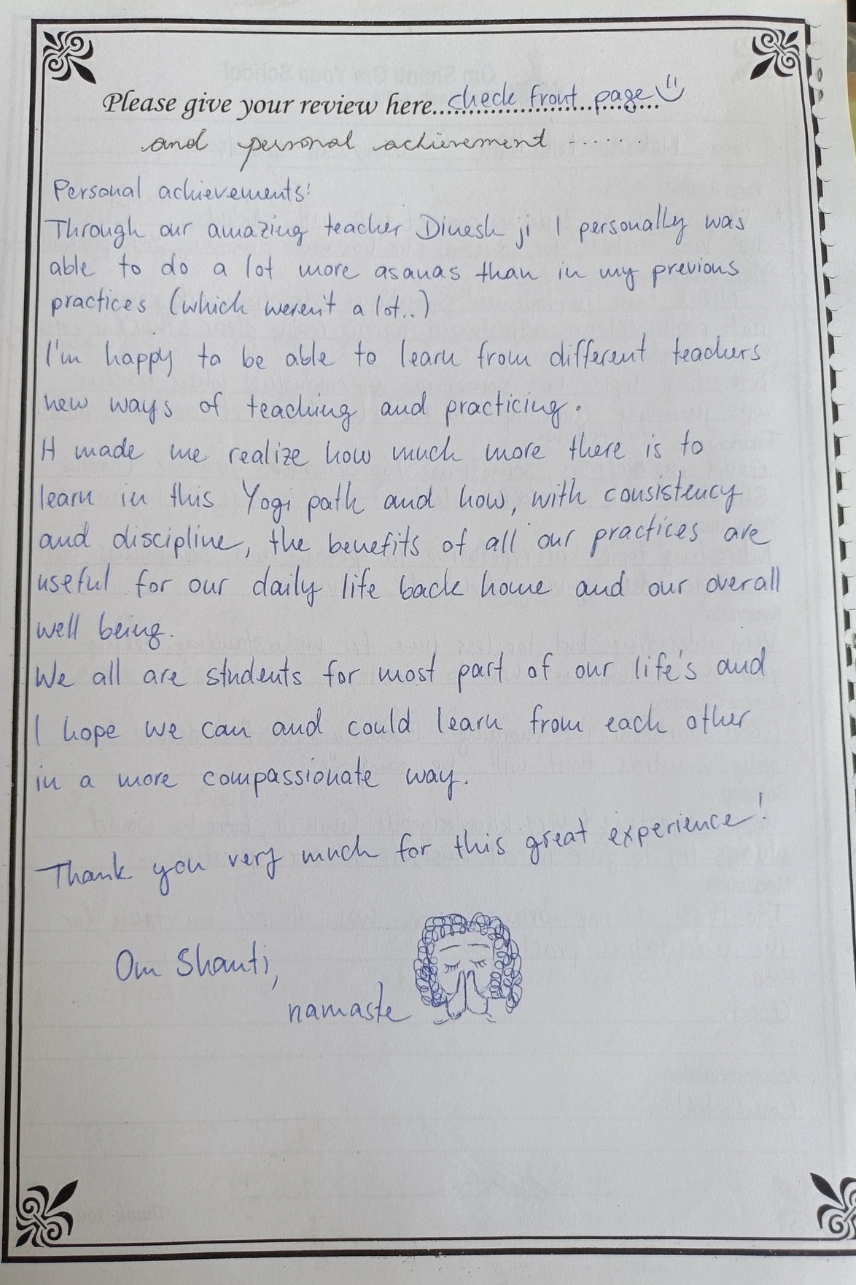 Please give your review here...check front page
and personal achievement ......
Personal achievements:
Through our amazing teacher Dinesh ji I personally was
able to do a lot more asanas than in my previous
practices (which weren't a lot..)
I'm happy to be able to learn from different teachers
new ways of teaching and practicing.
It made me realize how much more there is to
learn in this Yogi path and how, with consistency
and discipline, the benefits of all our practices are
useful for our daily life back home and our overall
well being.
We all are students for most part of our life's and
I hope we can and could learn from each other
in a more compassionate way.
Thank you very much for this great experience!
Om Shanti,
namaste